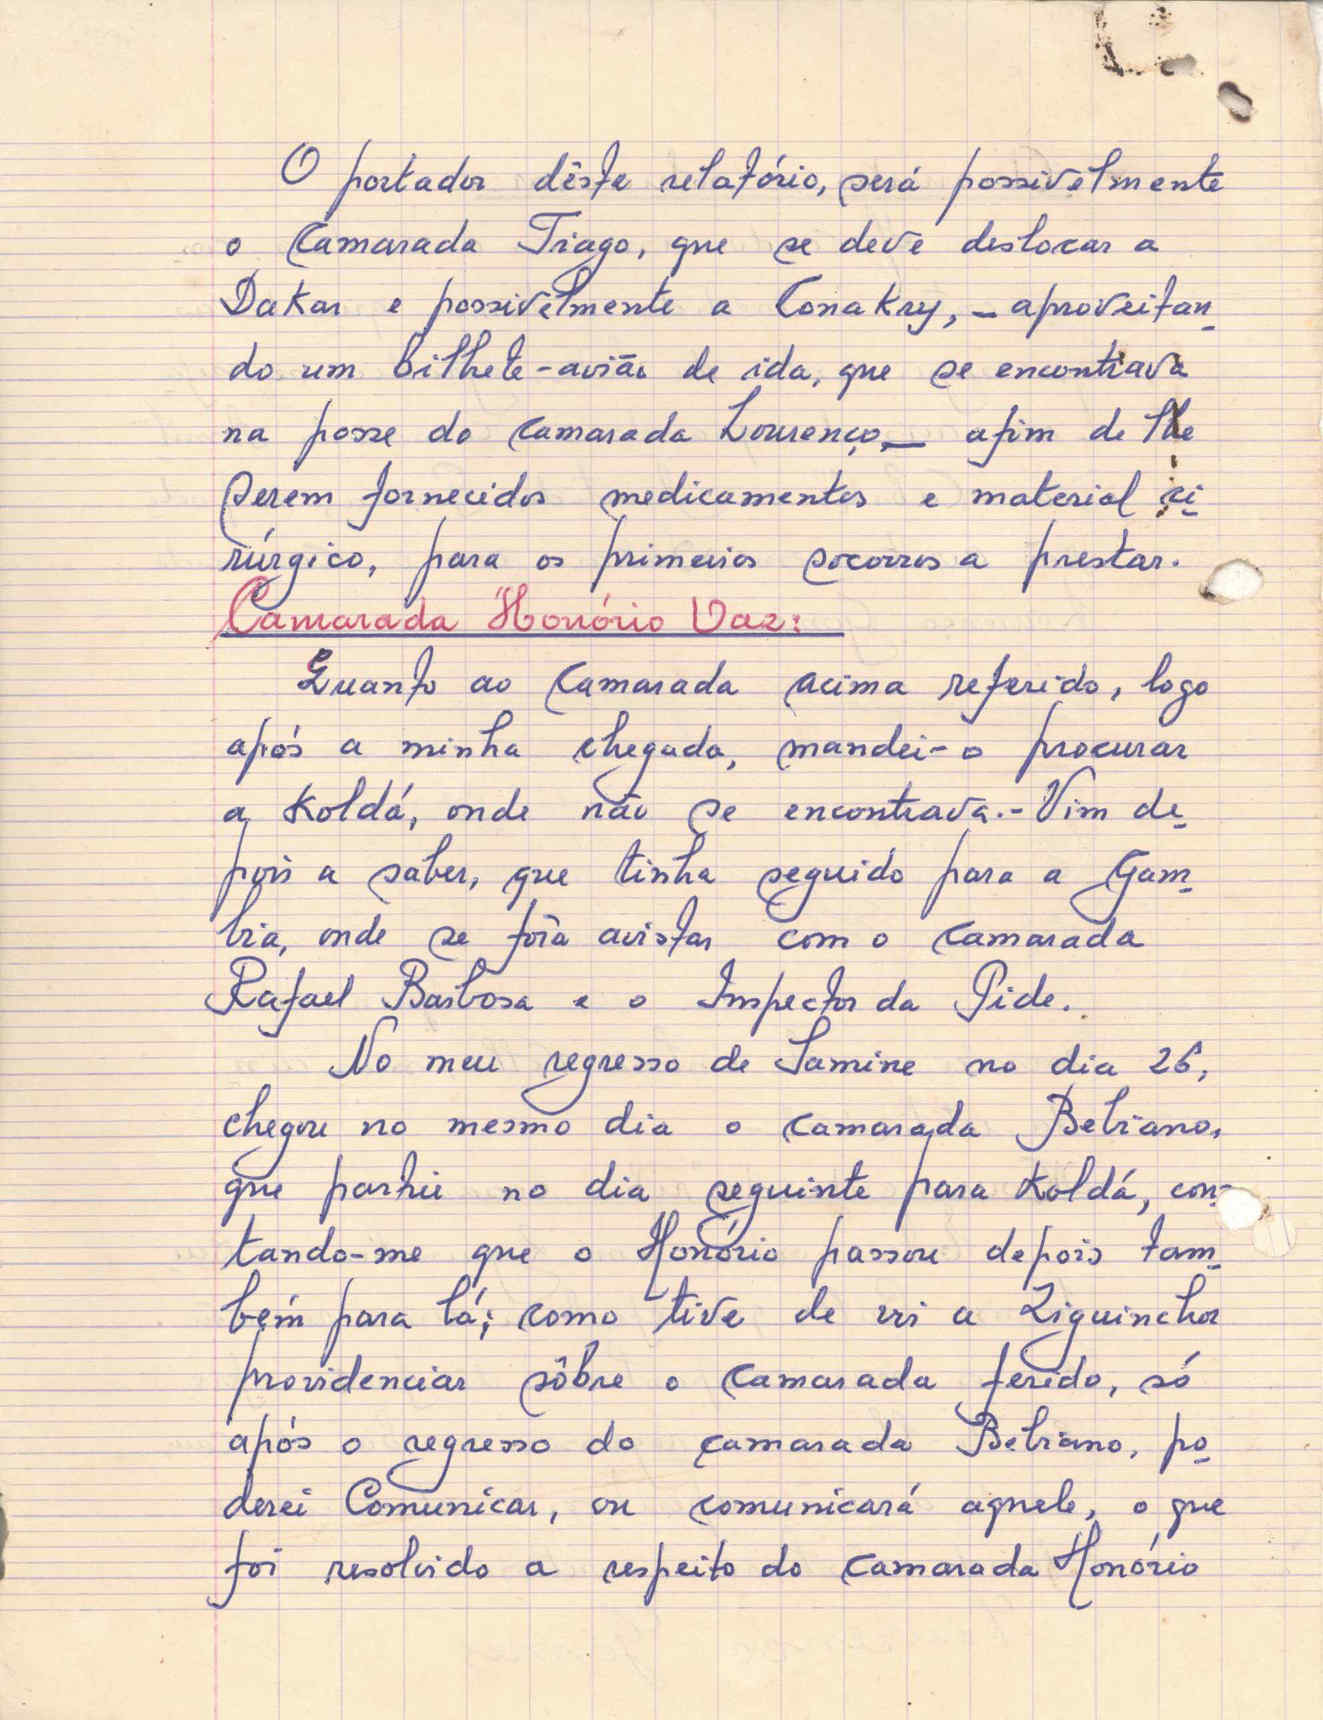 O portador dêste relatório, será possivelmente
o Camarada Tiago, que se deve deslocar a
Dakar e possivelmente a Conakry, - aproveitan-
do um bilhete-avião de ida, que se encontrava
na posse do camarada Lourenço, - afim de lhe
serem fornecidos medicamentos e material ci-
rúrgico, para os primeiros socorros a prestar.
Camarada Honório Vaz:
Quanto ao Camarada acima referido, logo
após a minha chegada, mandei-o procurar
a Koldá, onde não se encontrava.- Vim de-
pois a saber, que tinha seguido para a Gam-
bia, onde se fôra avistar com o camarada
Rafael Barbosa e o Inspector da Pide.
No meu regresso de Samine no dia 26,
chegou no mesmo dia o camarada Belriano,
que partiu no dia seguinte para Koldá, con-
tando-me que o Honório passou depois tam-
bém para lá; como tive de vir a Ziguinchor
providenciar sôbre o camarada ferido, só
após o regresso do camarada Belriano, po-
derei Comunicar, ou comunicará aquele, o que
foi resolvido a respeito do camarada Honório